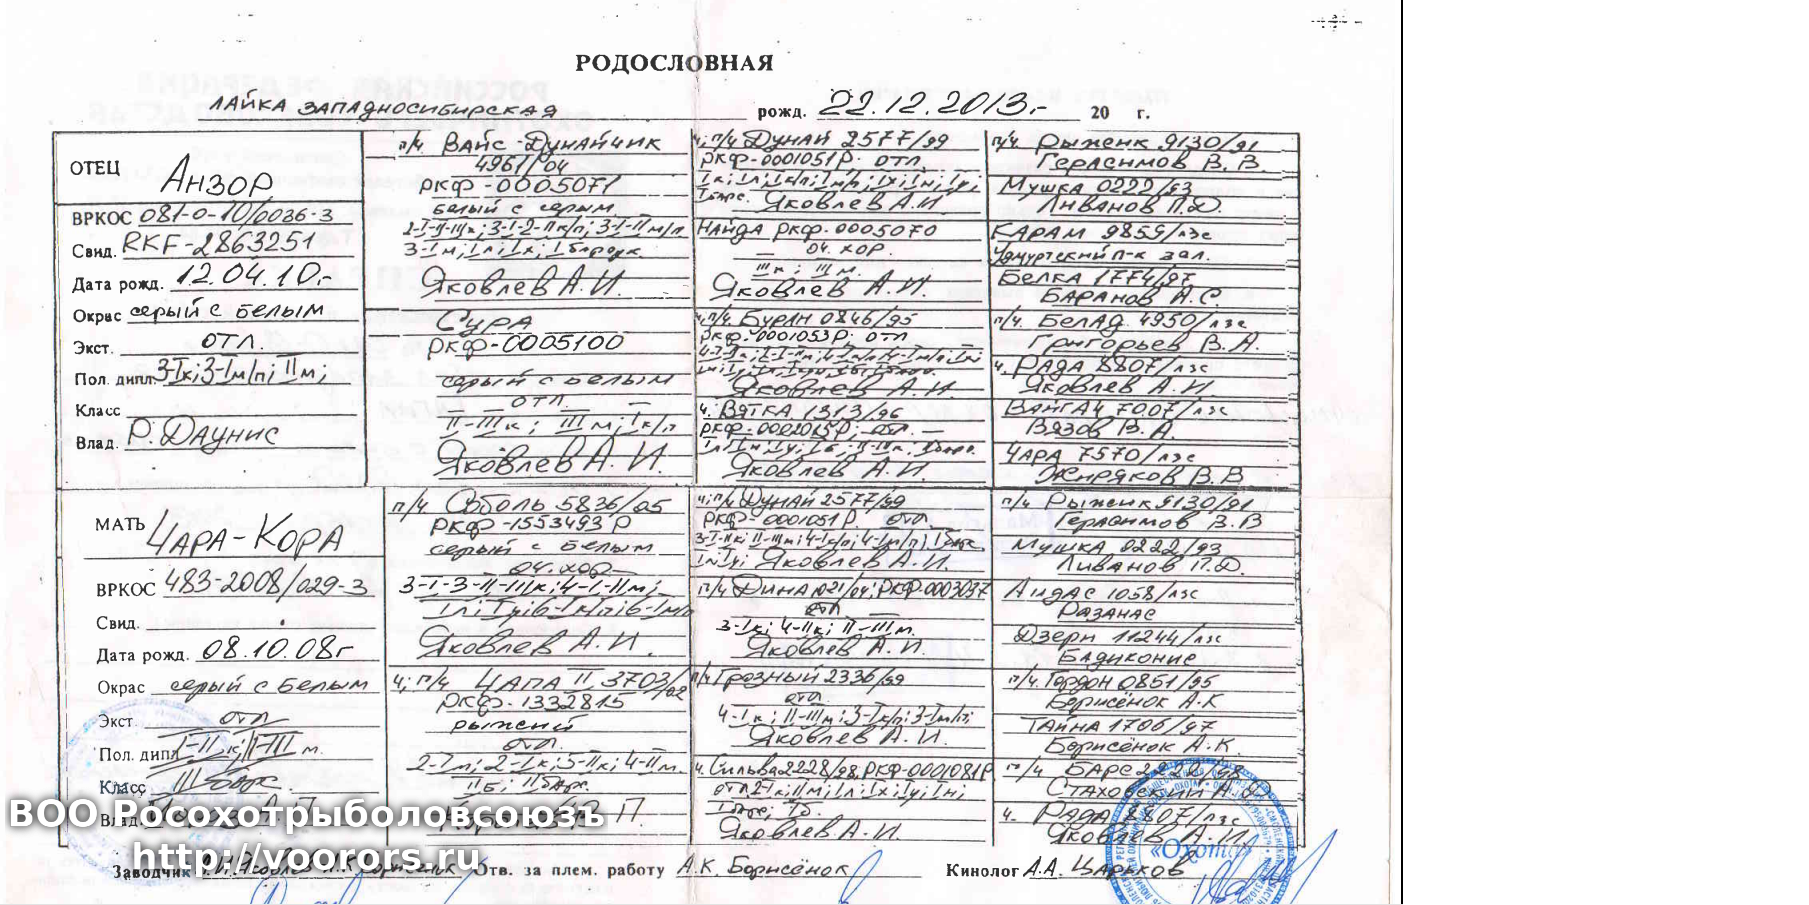 РОДОСЛОВНАЯ
ЛАЙКА ЗАПАДНОСИБИРСКАЯ рожд. 22.12.2013.- 20 г.
ОТЕЦ АНЗОР
ВРКОС 081-0-10/0036-3
Свид. RKF-2863251
Дата рожд. 12.04.10.-
Окрас серый с белым
Экст. отл.
Пол. дипл. 3-Iк; 3-Iм/п; IIм;
Класс
Влад. Р. ДАУНИС
п/ч ВАЙС-ДУНАЙЧИК
4961/04
РКФ-0005071
белый с серым
2-I-II-IIIк; 3-I-2-IIк/п; 3-I-IIм/п
3-Iм; Iл; Iх; I барсук.
ЯКОВЛЕВ А.И.
СУРА
РКФ-0005100
серый с белым
отл. —
II-IIIк; IIIм; Iк/п
ЯКОВЛЕВ А.И.
ч; п/ч ДУНАЙ 2577/99
РКФ-0001051Р. отл.
ЯКОВЛЕВ А.И
НАЙДА РКФ-0005070
04. хор.
IIIк; IIIм.
ЯКОВЛЕВ А.И.
ч, п/ч. БУРАН 0846/95
РКФ-0001053Р; отл.
ЯКОВЛЕВ А.И
ч. ВЯТКА 1313/96
ЯКОВЛЕВ А.И
п/ч РЫЖЕНК 9130/91
ГЕРАСИМОВ В.В.
МУШКА 0222/93
ЛИВАНОВ П.Д.
КАРАМ 9859/лзс
Удмуртский п-к зал.
БЕЛКА 1774/97
БАРАНОВ А.С.
п/ч. БЕЛАД 4950/лзс
ГРИГОРЬЕВ В.А.
ч. РАДА 8807/лзс
ЯКОВЛЕВ А.И.
ВАЙГАЧ 7007/лзс
ВЯЗОВ В.А.
ЧАРА 7570/лзс
ЖИРЯКОВ В.В
МАТЬ ЧАРА-КОРА
ВРКОС 483-2008/029-3
Свид.
Дата рожд. 08.10.08г
Окрас серый с белым
Экст. отл
Пол. дипл I-IIк; II-III м.
Класс III барс.
Влад.
п/ч СОБОЛЬ 5836/05
РКФ-1553493Р
серый с белым
04.хор
3-I-3-II-IIIк; 4-I-IIм;
Iл; Iу; 6-Iк/п; 6-Iм/п
ЯКОВЛЕВ А.И.
ч; п/ч ЦАПА II 3703/02
РКФ-1332815
рыжий
отл.
2-Iл; 2-Iк; 5-IIк; 4-IIм.
IIб; II барс.
ч; п/ч ДУНАЙ 2577/99
РКФ-0001051Р. отл.
ЯКОВЛЕВ А.И.
п/ч ДИНА 1021/04; РКФ-0003037
отл
3-Iк; 4-IIк; II-IIIм.
ЯКОВЛЕВ А.И.
п/ч ГРОЗНЫЙ 2336/99
отл
4-Iк; II-IIIм; 3-Iк/п; 3-Iм/п;
ЯКОВЛЕВ А.И.
ч. СИЛЬВА 2228/98, РКФ-0001081Р
ЯКОВЛЕВ А.И.
п/ч РЫЖЕНК 9130/91
ГЕРАСИМОВ В.В
МУШКА 0222/93
ЛИВАНОВ П.Д.
АИДАС 1058/лзс
РАЗАНАС
ДЗЕРН 11244/лзс
БАДИКОНИС
п/ч. ГОРДОН 0851/95
БОРИСЁНОК А.К
ТАЙНА 1706/97
БОРИСЁНОК А.К.
п/ч БАРС
СТАХОВСКИЙ А.О.
ч. РАДА 8807/лзс
ЯКОВЛЕВ А.И.
ВОО Росохотрыболовсоюзъ
http://voorors.ru
Заводчик Отв. за плем. работу А.К. БОРИСЁНОК Кинолог А.А. ЦАРЬКОВ
«Охота»